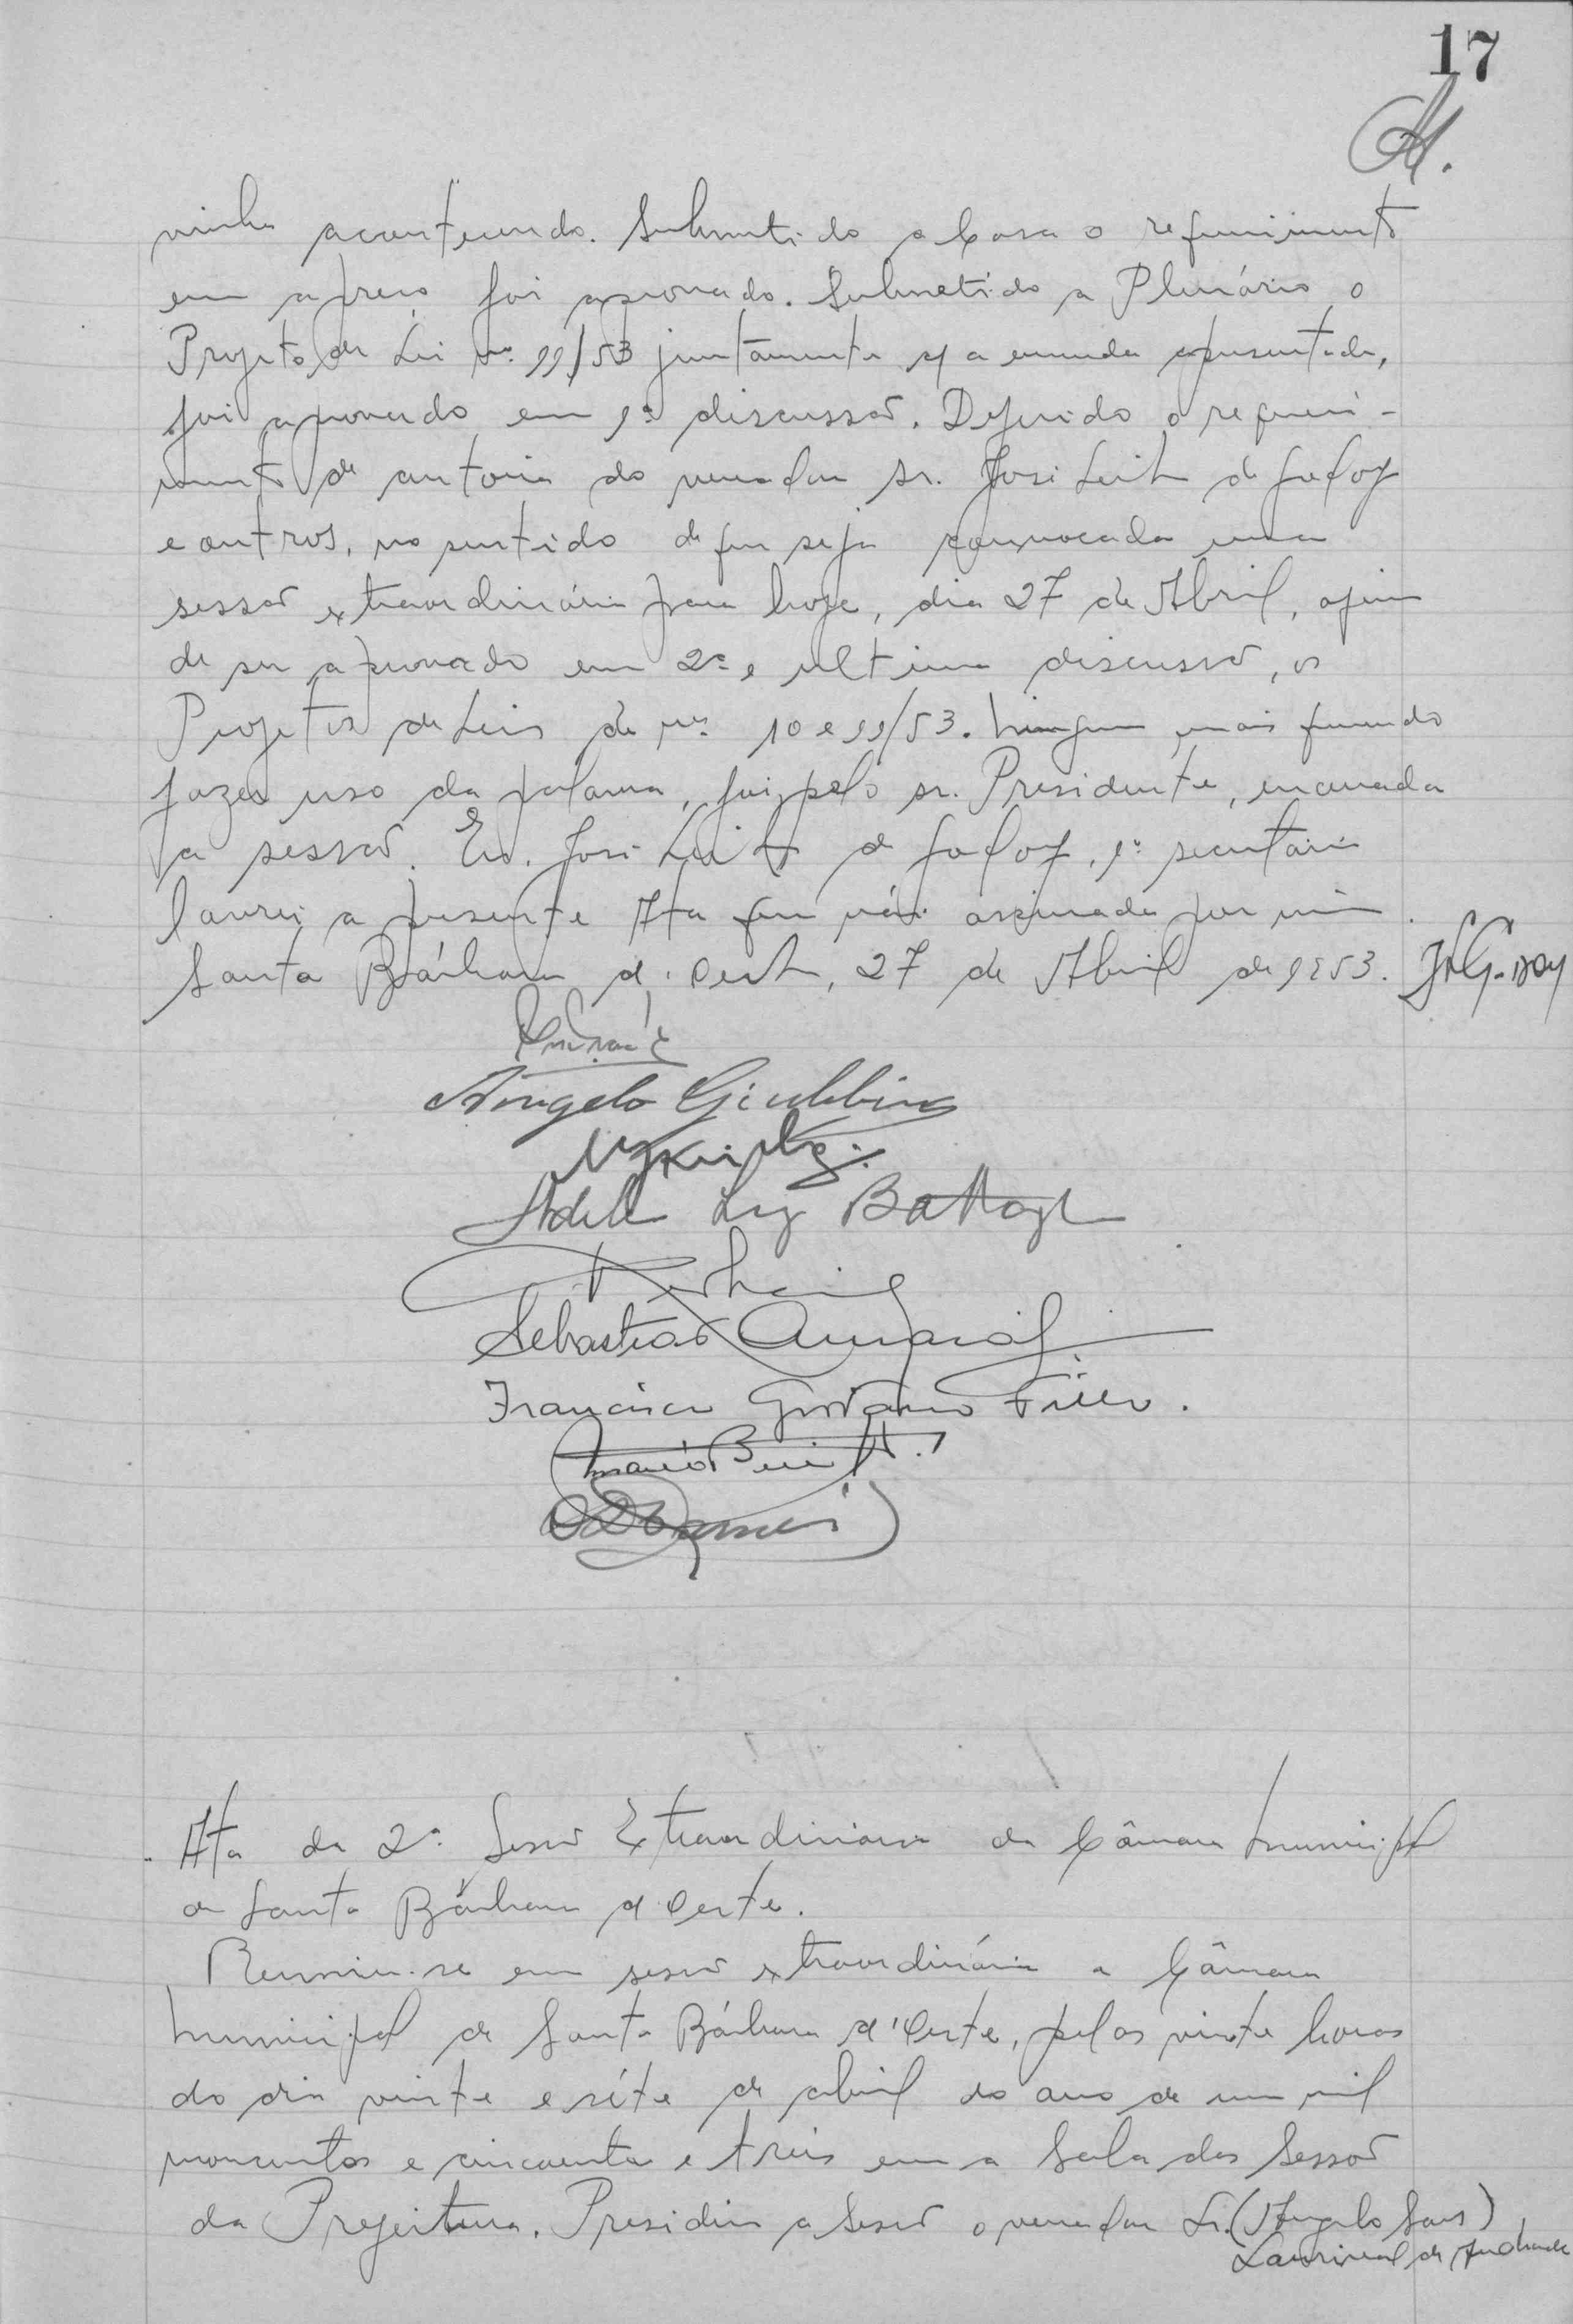 17
vinha acontecendo. Submetido a Casa o requerimento
em apreço foi aprovado. Submetido a Plenário o
Projeto de Lei nº 11/53 juntamente c/ a emenda apresentada,
foi aprovado em 1ª discussão. Deferido o requeri-
mento de autoria do vereador sr. José Leite de Godoy
e outros, no sentido de que seja convocada uma
sessão extraordinária para hoje, dia 27 de Abril, afim
de ser aprovado em 2ª e ultima discussão, os
Projetos de Leis de nºs 10 e 11/53. Ninguem mais querendo
fazer uso da palavra, foi, pelo sr. Presidente, encerrada
a sessão. Eu, José Leite de Godoy, 1º secretário
lavrei a presente Ata que vái assinada por mim.
Santa Bárbara d'Oeste, 27 de Abril de 1953. JLGodoy
Angelo Giubbina
Luz Battagl
Sebastião Amaral
Francisco Gustavo Filho.
Mario
Ata da 2ª Sessão Extraordinaria da Câmara Municipal
de Santa Bárbara d'Oeste.
Reuniu-se em sessão extraordinária a Câmara
Municipal de Santa Bárbara d'Oeste, pelas vinte horas
do dia vinte e séte de abril do ano de um mil
novecentos e cincoenta e treis em a Sala das Sessão
da Prefeitura. Presidiu a Sessão o vereador Sr. (Angelo Sans)
Lourival de Andrade